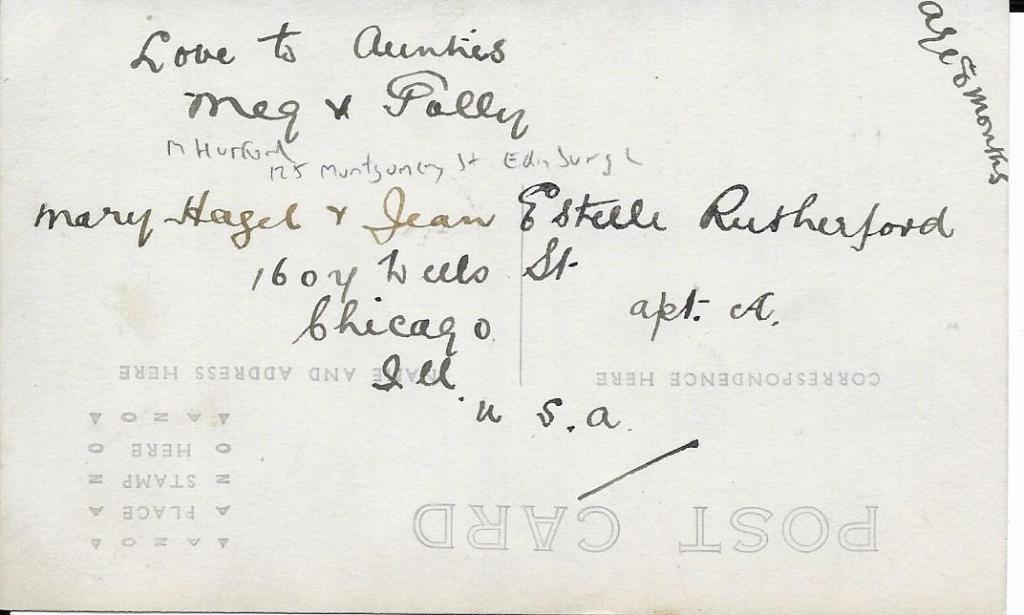 Love to Aunties
Meg & Polly
M Hurford
125 Montgomery St Edinburgh
Mary Hazel & Jean Estelle Rutherford
1607 Wells St
apt. A.
Chicago
Ill.
U S.A.
age 8 months
NAME AND ADDRESS HERE
CORRESPONDENCE HERE
POST CARD
AZOA
PLACE
STAMP
HERE
AZOA